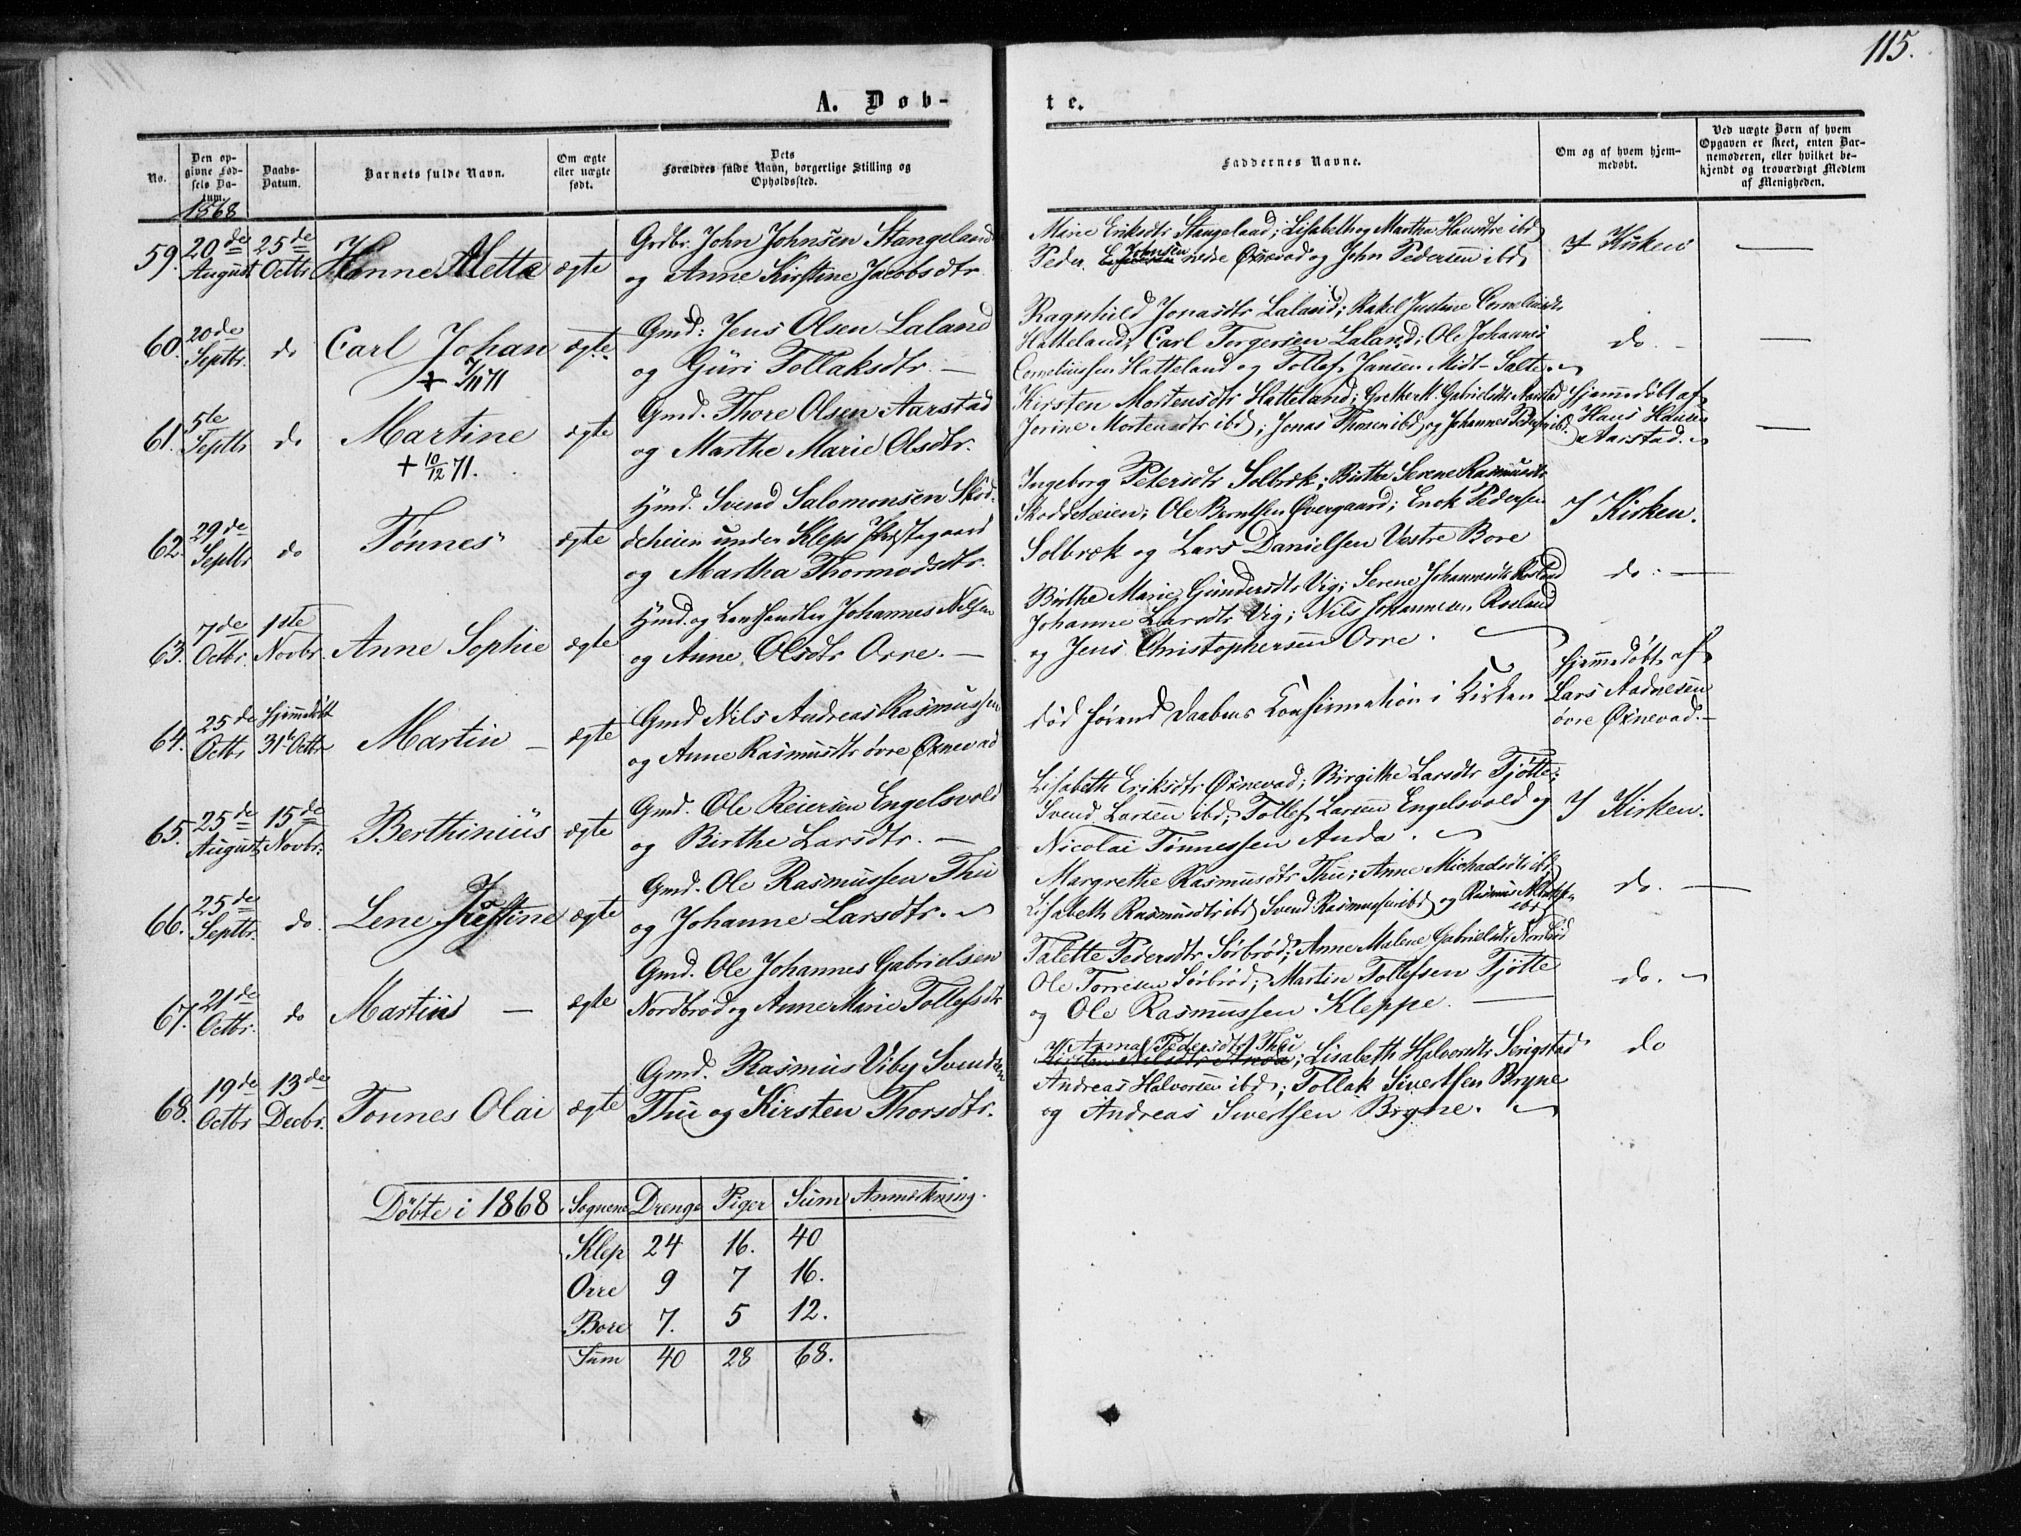 115.
A. Døb-
te.
No.
Den op-
givne Fød-
sels Da-
tum.
Daabs-
Datum.
Barnets fulde Navn.
Om ægte
eller uægte
født.
Dets
Forældres fulde Navn, borgerlige Stilling og
Opholdssted.
Faddernes Navne.
Om og af hvem hjem-
medøbt.
Ved uægte Børn af hvem
Opgaven er skeet, enten Bar-
nemoderen, eller hvilket be-
kjendt og troværdigt Medlem
af Menigheden.
1868
59. 20de August 25de Octbr Hanne Mette ægte
Grdbr. John Johnsen Stangeland
og Anne Kirstine Jacobsdtr
Marie Eriksdtr Stangeland; Lisabeth og Martha Hansdtre ibd
Peder Johnsen nedre Øxnevad og John Pedersen ibd
I Kirken
60. 20de Septbr. do Carl Johan ægte
+ 7/11 71
Gmd: Jens Olsen Laland
og Guri Tollaksdtr. —
Ragnhild Jonasdtr Laland; Rakel Justine Corneliusdtr
Hatteland; Carl Torgersen Laland; Ole Johannes
Corneliussen Hatteland og Tollef Jansen Midt-Salte.
do. —
61. 5te Septbr do Martine ægte
+ 10/12 71.
Gmd. Thore Olsen Aarstad
og Marthe Marie Olsdtr.
Kirsten Mortensdtr Hatteland; Grethe M. Gabrielsdtr Aarstad
Jorine Mortensdtr ibd; Jonas Thosen ibd og Johannes Pedersen ibd.
Hjemmedøbt af
Hans Hansen
Aarstad.
62. 29de Septbr do Tønnes ægte
Hmd. Svend Salomonsen Skod-
deheien under Kleps Præstegaard
og Martha Thormodsdtr.
Ingeborg Petersdtr Solbrek; Birthe Serene Rasmusdtr
Skoddeheien; Ole Berntsen Øvergaard; Enok Pedersen
Solbrek og Lars Danielsen Vestre Bore
I Kirken.
63. 7de Octbr. 1ste Novbr. Anne Sophie ægte
Hmd. og Landhandler Johannes Nilsen
og Anne Olsdtr Orre. —
Birthe Marie Gundersdtr Vig; Serene Johannesdtr Roeland
Johanne Larsdtr Vig; Nils Johannesen Roeland
og Jens Christophersen Orre.
do. —
64. 25de Octbr Hjemmedøbt 31te Octbr Martin — ægte
Gmd Nils Andreas Rasmussen
og Anne Rasmusdtr øvre Øxnevad
død førend Daabens Confirmation i Kirken
Hjemmedøbt af
Lars Aadnesen
øvre Øxnevad. —
65. 25de August 15de Novbr. Berthinius ægte
Gmd. Ole Reiersen Engelsvold
og Birthe Larsdtr. —
Lisabeth Eriksdtr Øxnevad; Birgithe Larsdtr Tjøtte;
Svend Larsen ibd; Tollef Larsen Engelsvold og
Nicolai Tønnessen Anda.
I Kirken.
66. 25de Septbr. do. Lene Justine ægte
Gmd. Ole Rasmussen Thu
og Johanne Larsdtr.
Margrethe Rasmusdtr Thu; Anne Michaelsdtr ibd
Lisabeth Rasmusdtr ibd Svend Rasmussen ibd og Rasmus ibd
do. —
67. 21de Octbr. do Martius — ægte
Gmd. Ole Johannes Gabrielsen
Nordbrød og Anne Marie Tollefsdtr
Talette Pedersdtr Sørbrød; Anne Malene Gabrielsdtr Nordbrød
Ole Torresen Sørbrød; Martin Tollefsen Tjøtte
og Ole Rasmussen Kleppe. —
do.
68. 19de Octbr 13de Decbr. Tonnes Olai ægte
Gmd. Rasmus Viby Svendsen
Thu og Kirsten Thorsdtr.
Anna Pedersdtr Thu
Kirsten Nilsdtr Anda; Lisabeth Halvorsdtr Serigstad
Andreas Halvorsen ibd; Tollak Sivertsen Bryne
og Andreas Sivertsen Bryne.
do
Døbte i 1868 Sognene Drenge Piger Sum Anmerkning.
Klep 24 16. 40
Orre 9 7 16.
Bore 7. 5 12.
Sum 40 28 68.